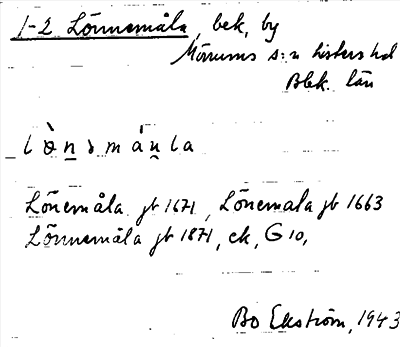 1-2 Lönnemåla, bek, by
Mörrums s:n Listers hd
Blek. län
Lönemåla jb 1671, Lönemala jb 1663
Lönnemåla jb 1871, ek, G 10,
Bo Ekström, 1943